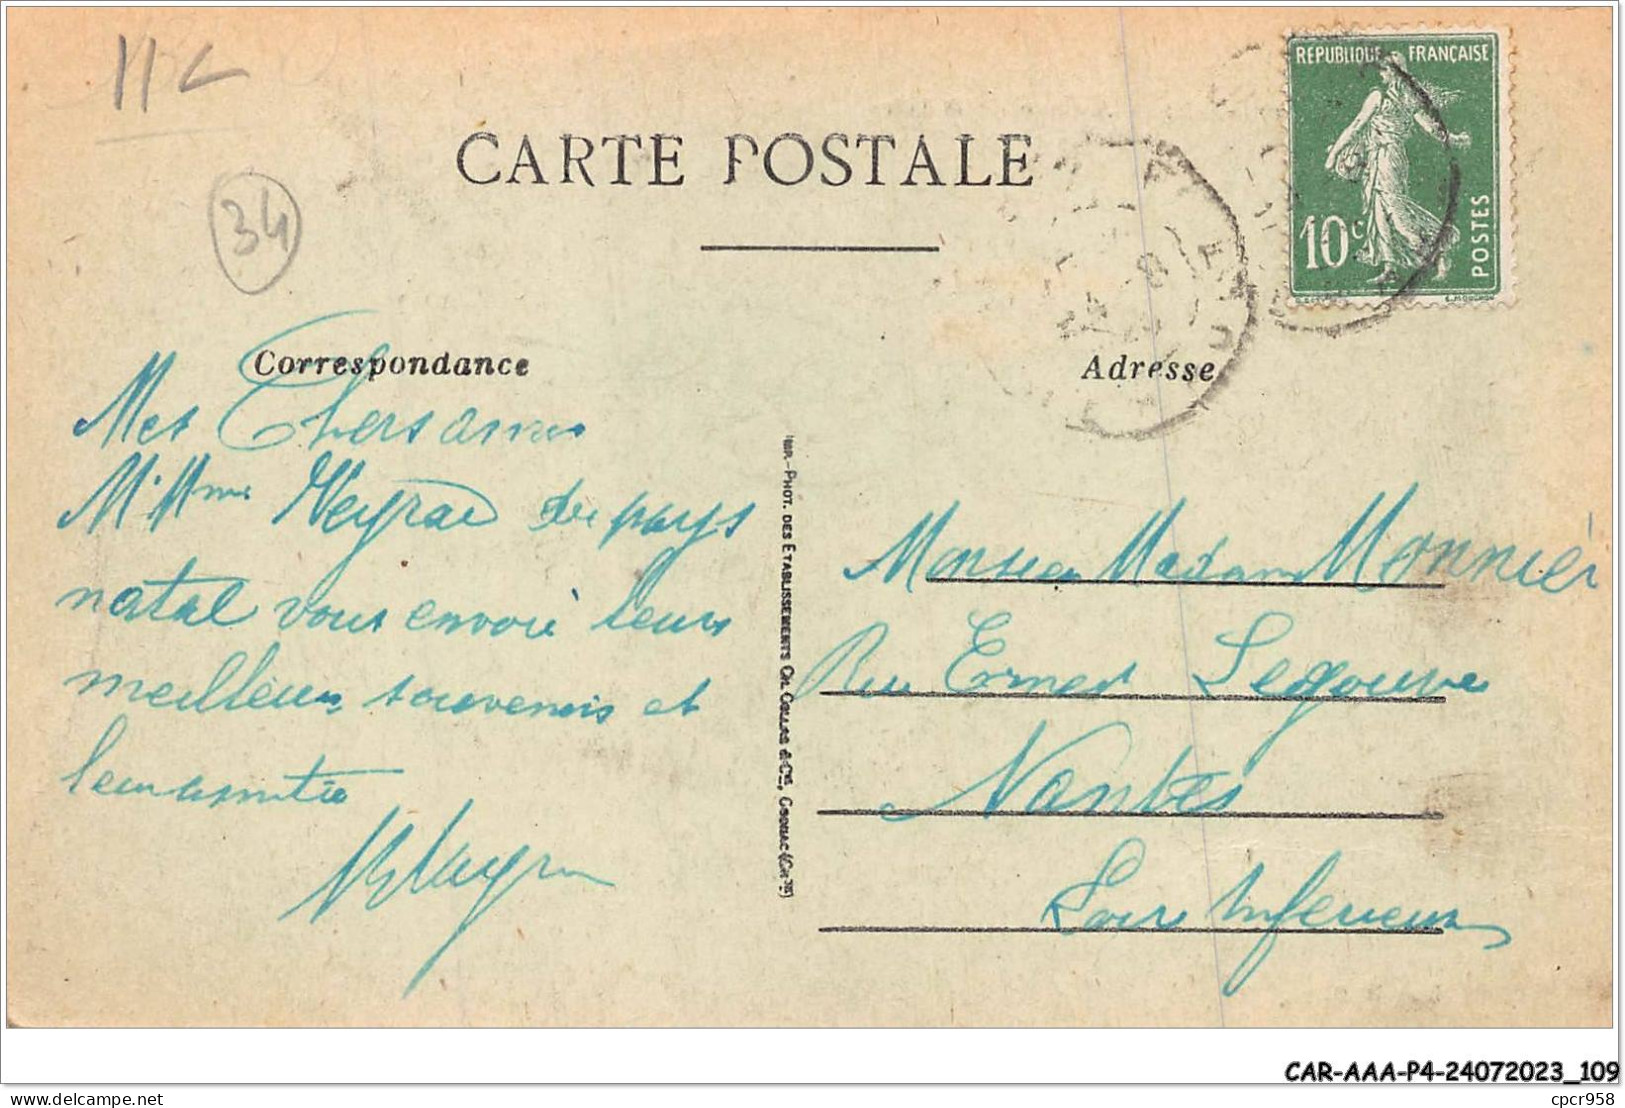 11c
34
CARTE POSTALE
REPUBLIQUE FRANÇAISE
10c
POSTES
Correspondance
Adresse
Mes Chers amis
M. Mme Neyrac du pays
natal vous envoie leurs
meilleurs souvenirs et
leur amitié
IMP.-PHOT. DES ETABLISSEMENTS CH. COLLAS & Cie, COGNAC (Chte)
Monsieur Madame Monnier
Rue Ernest Legouve
Nantes
Loire Inferieure
CAR-AAA-P4-24072023_109
delcampe.net
cpcr958